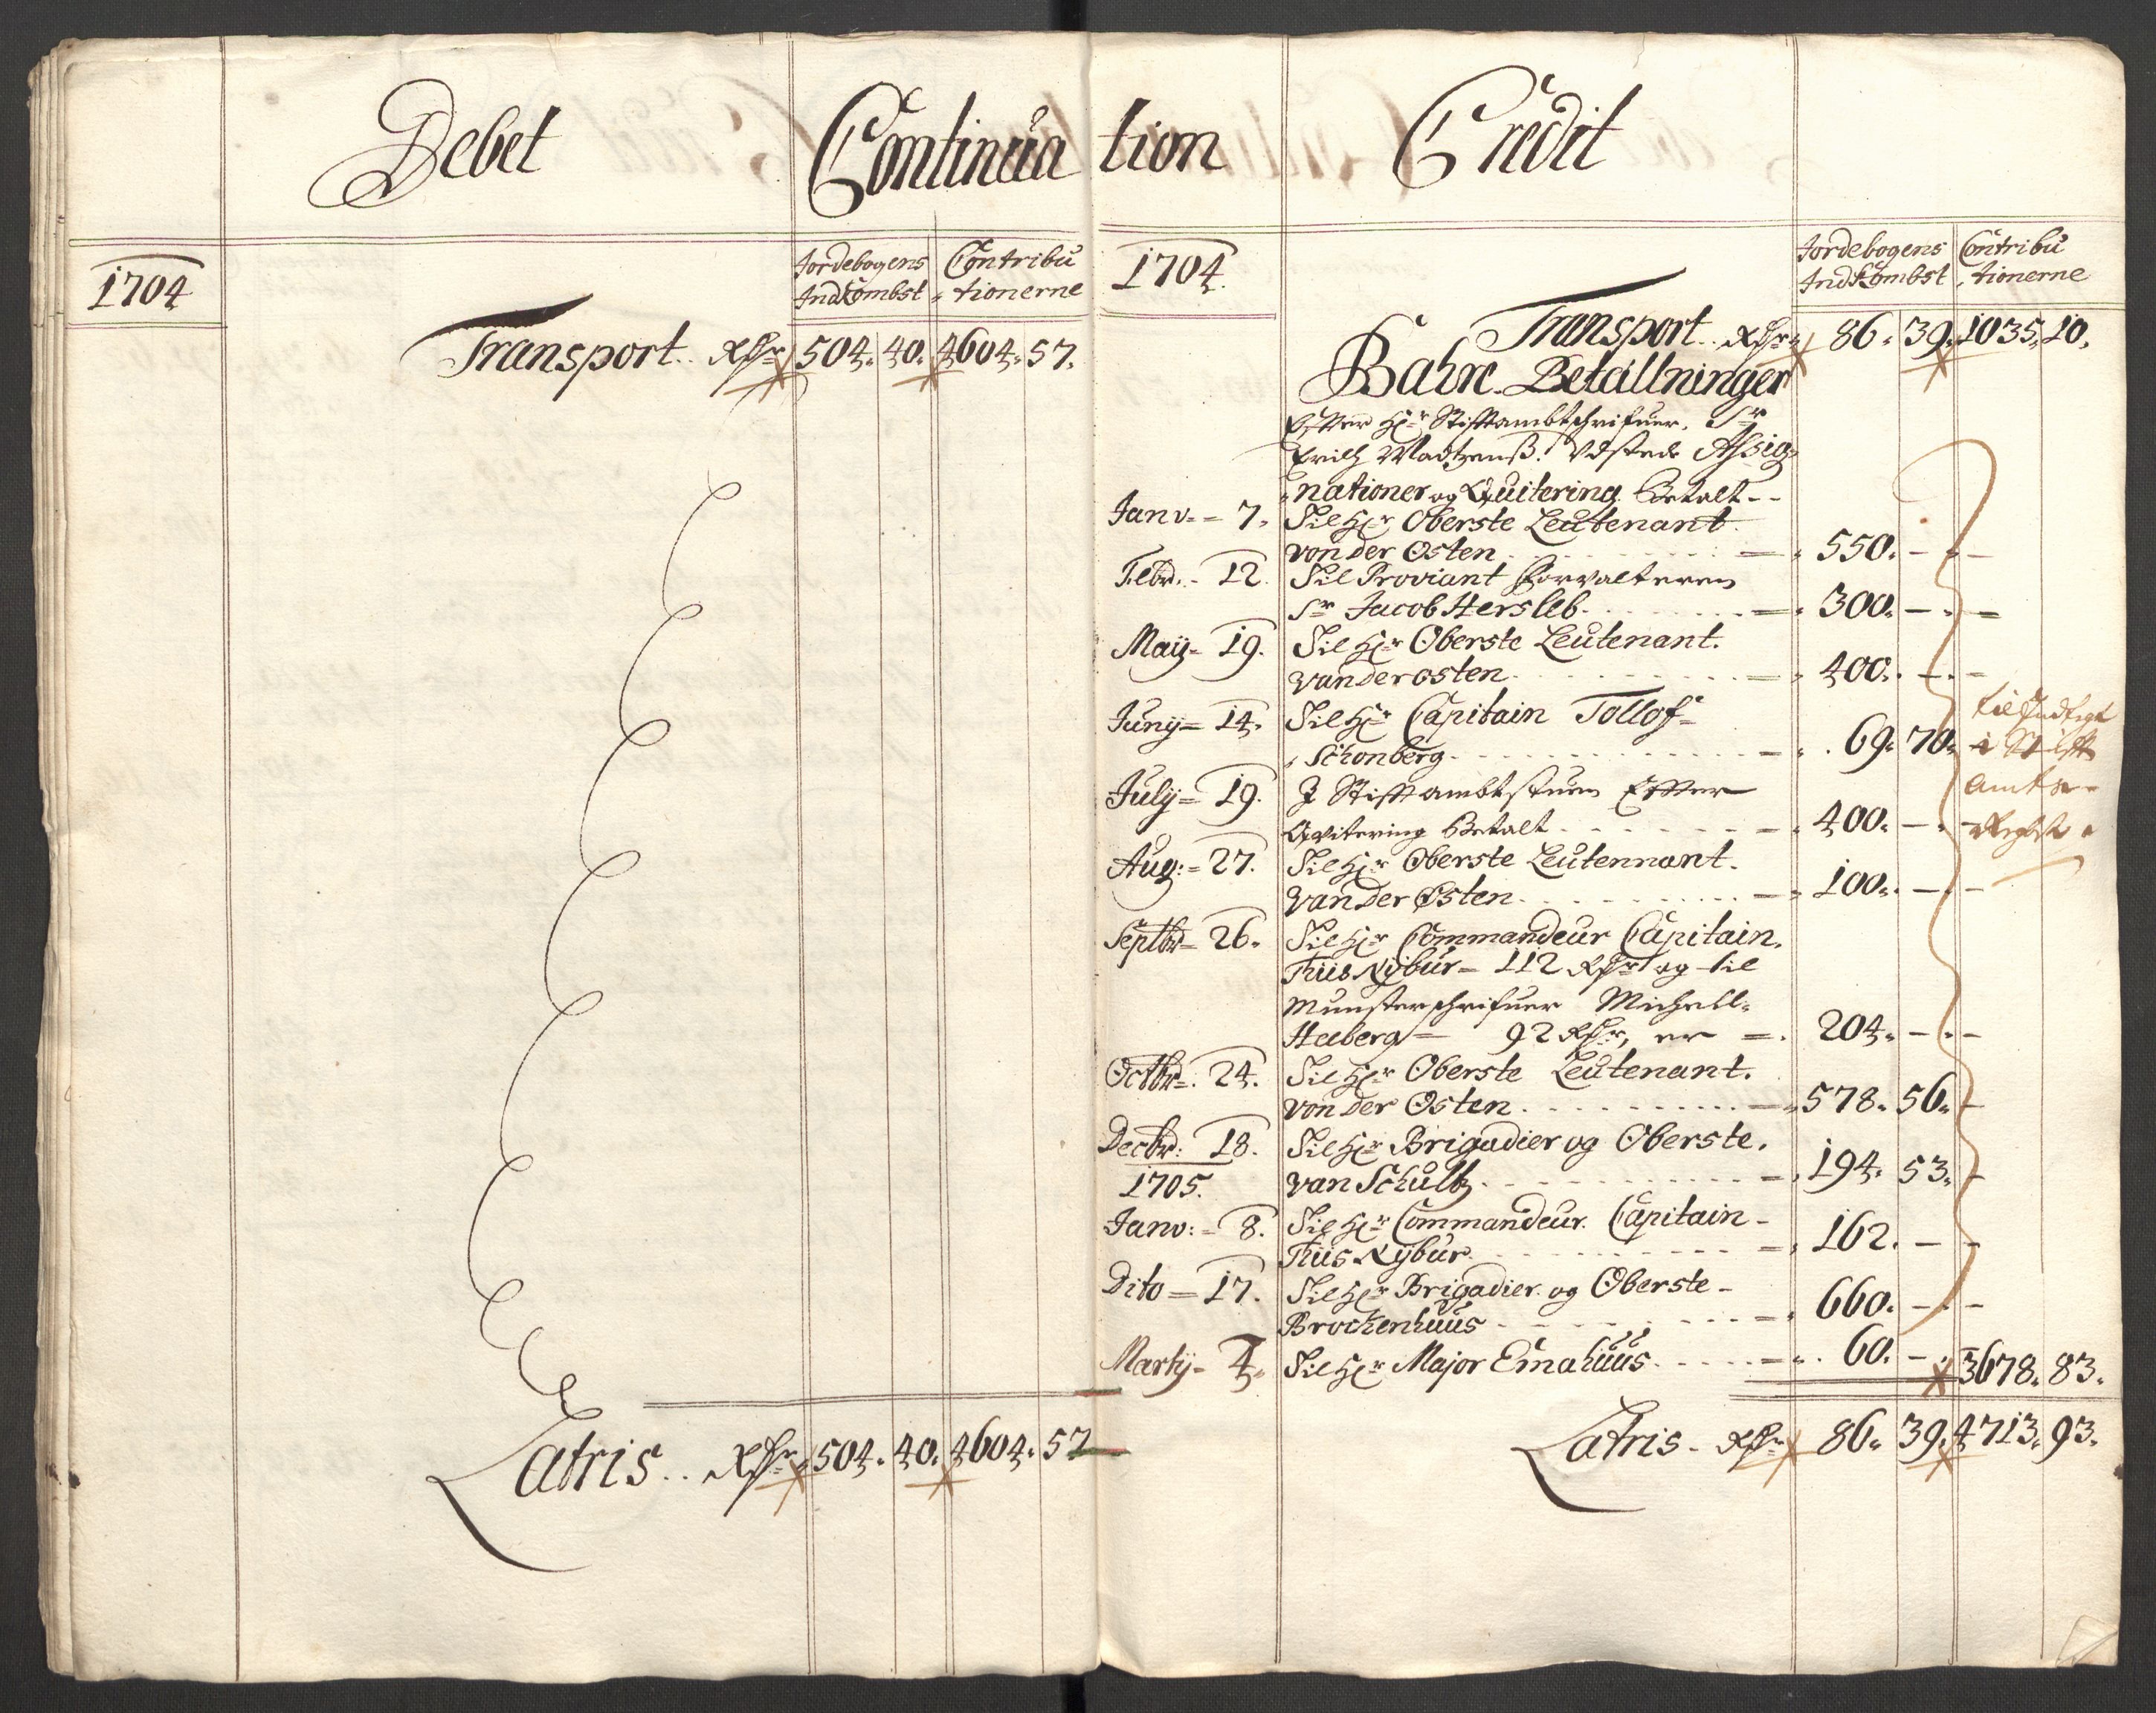 Debet
Continua tion
Credit
1704
Jordebogens Indkombst
Contribu tionerne
Transport.. Rdr 504. 40. 4604. 57.
Latris.. Rdr 504. 40. 4604. 57
1704.
Jordebogens Indkombst
Contribu tionerne
Transport.. Rdr 86. 39. 1035. 10.
Bahre Betallninger
Efter Hr Stiftambtschrifuer. Sr
Erich Madtzenß. Udstede Assig
nationer og Quitering Betalt--
Janv. = 7. Til Hr Oberste Leutenant
von der Osten 550. - -
Febr. - 12. Til Proviant Forvalteren
Sr Jacob Hersleb. 300. - -
Maij = 19. Til Hr Oberste Leutenant.
Van der osten 400. - -
Junij = 14. Til Hr Capitain Tollof-
Schonberg. 69. 70. -
July = 19. J Stiftambtstuen Efter
Qvitering Betalt 400. - -
Aug: = 27. Til Hr Oberste Leutennant.
Van der Osten. 100. - -
Septbr = 26. Til Hr Commandeur Capitain.
Thiis Nÿbur = 112 Rdr og til
Munsterschrifuer Michell-
Heeberg = 92 Rdr, er = 204. - -
Octbr =. 24. Til Hr Oberste Leutenant.
von der Osten. 578. 56. -
Decbr: 18. Til Hr Brigadier og Oberste.
1705. van Schultz. 194. 53. -
Janv: = 8. Til Hr Commandeur. Capitain-
Thiis Nÿbur. 162. - -
Dito = 17. Til Hr Brigadier. og Oberste-
Brockenhuus 660. - -
Martÿ = 4. Til Hr Major Emahuus. 60. - 3678. 83.
til Indtegt
i Stift
Amts-
Latris. Rdr 86. 39. 4713. 93.